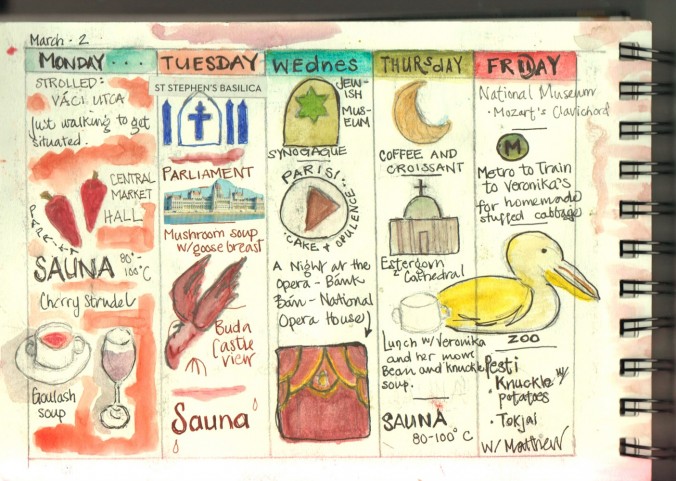 March - 2
MONDAY ...
STROLLED:
VÁCI UTCA
Just walking to get
situated.
CENTRAL
MARKET
HALL
PAPRIKA
SAUNA 80°-
100°C
Cherry Strudel
Goulash
soup
TUESDAY
ST STEPHEN'S BASILICA
PARLIAMENT
Mushroom soup
w/goose breast
Buda
Castle
view
Sauna
WEDNES
JEW-
ISH
MUS-
EUM
SYNOGAGUE
PARISI
CAKE & OPULENCE
A Night at the
Opera - Bánk
Bán - National
Opera House
THURSDAY
COFFEE AND
CROISSANT
Estergovn
Cathedral
Lunch w/Veronika
and her mom
Bean and knuckle
soup.
SAUNA
80-100°C
FRIDAY
National Museum
• Mozart's Clavichord
M
Metro to Train
to Veronika's
for homemade
stuffed cabbage
ZOO
Pesti
• Knuckle w/
potatoes
• Tokjai
w/ Matthew